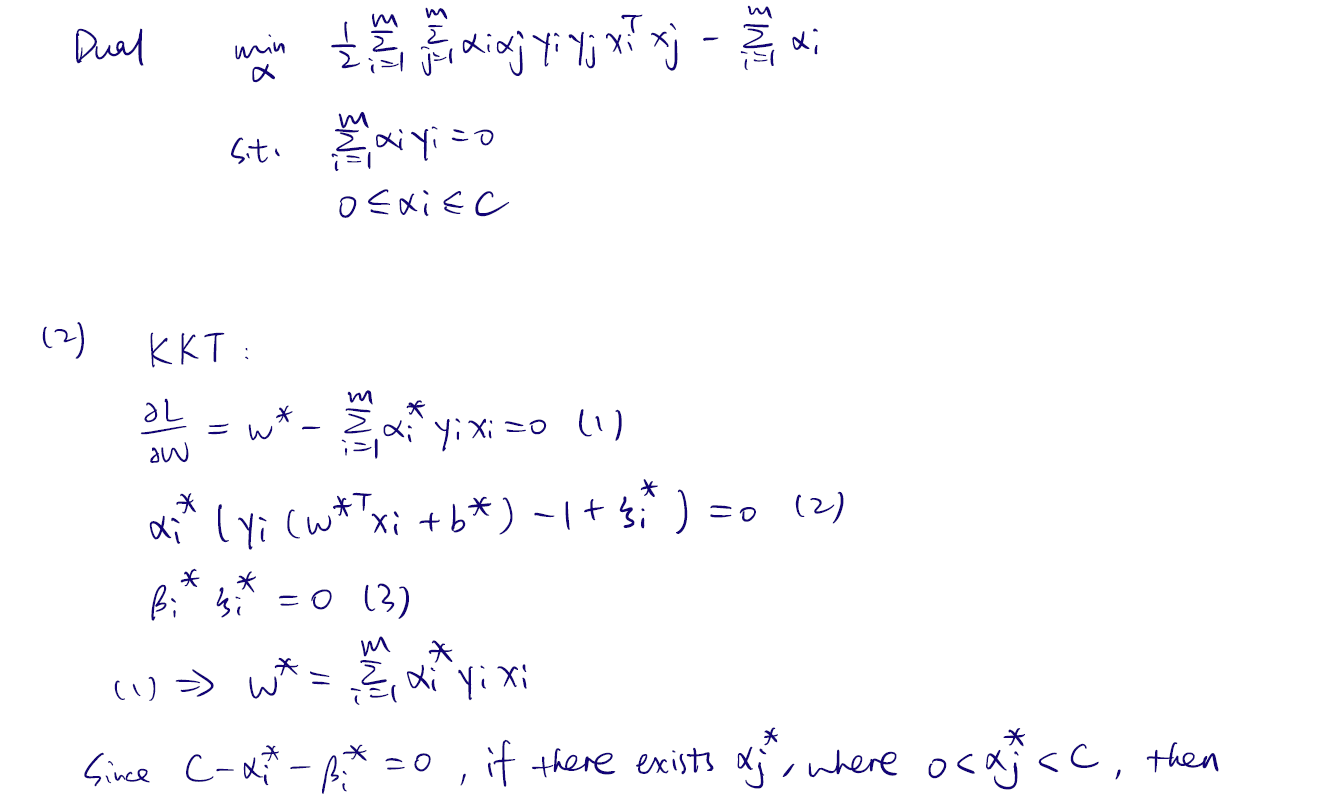 Dual min_α 1/2 Σ_{i=1}^m Σ_{j=1}^m αiαj yi yj xi^T xj - Σ_{i=1}^m αi
s.t. Σ_{i=1}^m αi yi = 0
0 ≤ αi ≤ C
(2) KKT:
∂L/∂w = w* - Σ_{i=1}^m αi* yi xi = 0 (1)
αi* (yi (w*^T xi + b*) - 1 + ξi*) = 0 (2)
βi* ξi* = 0 (3)
(1) ⇒ w* = Σ_{i=1}^m αi* yi xi
Since C - αi* - βi* = 0, if there exists αj*, where 0 < αj* < C, then